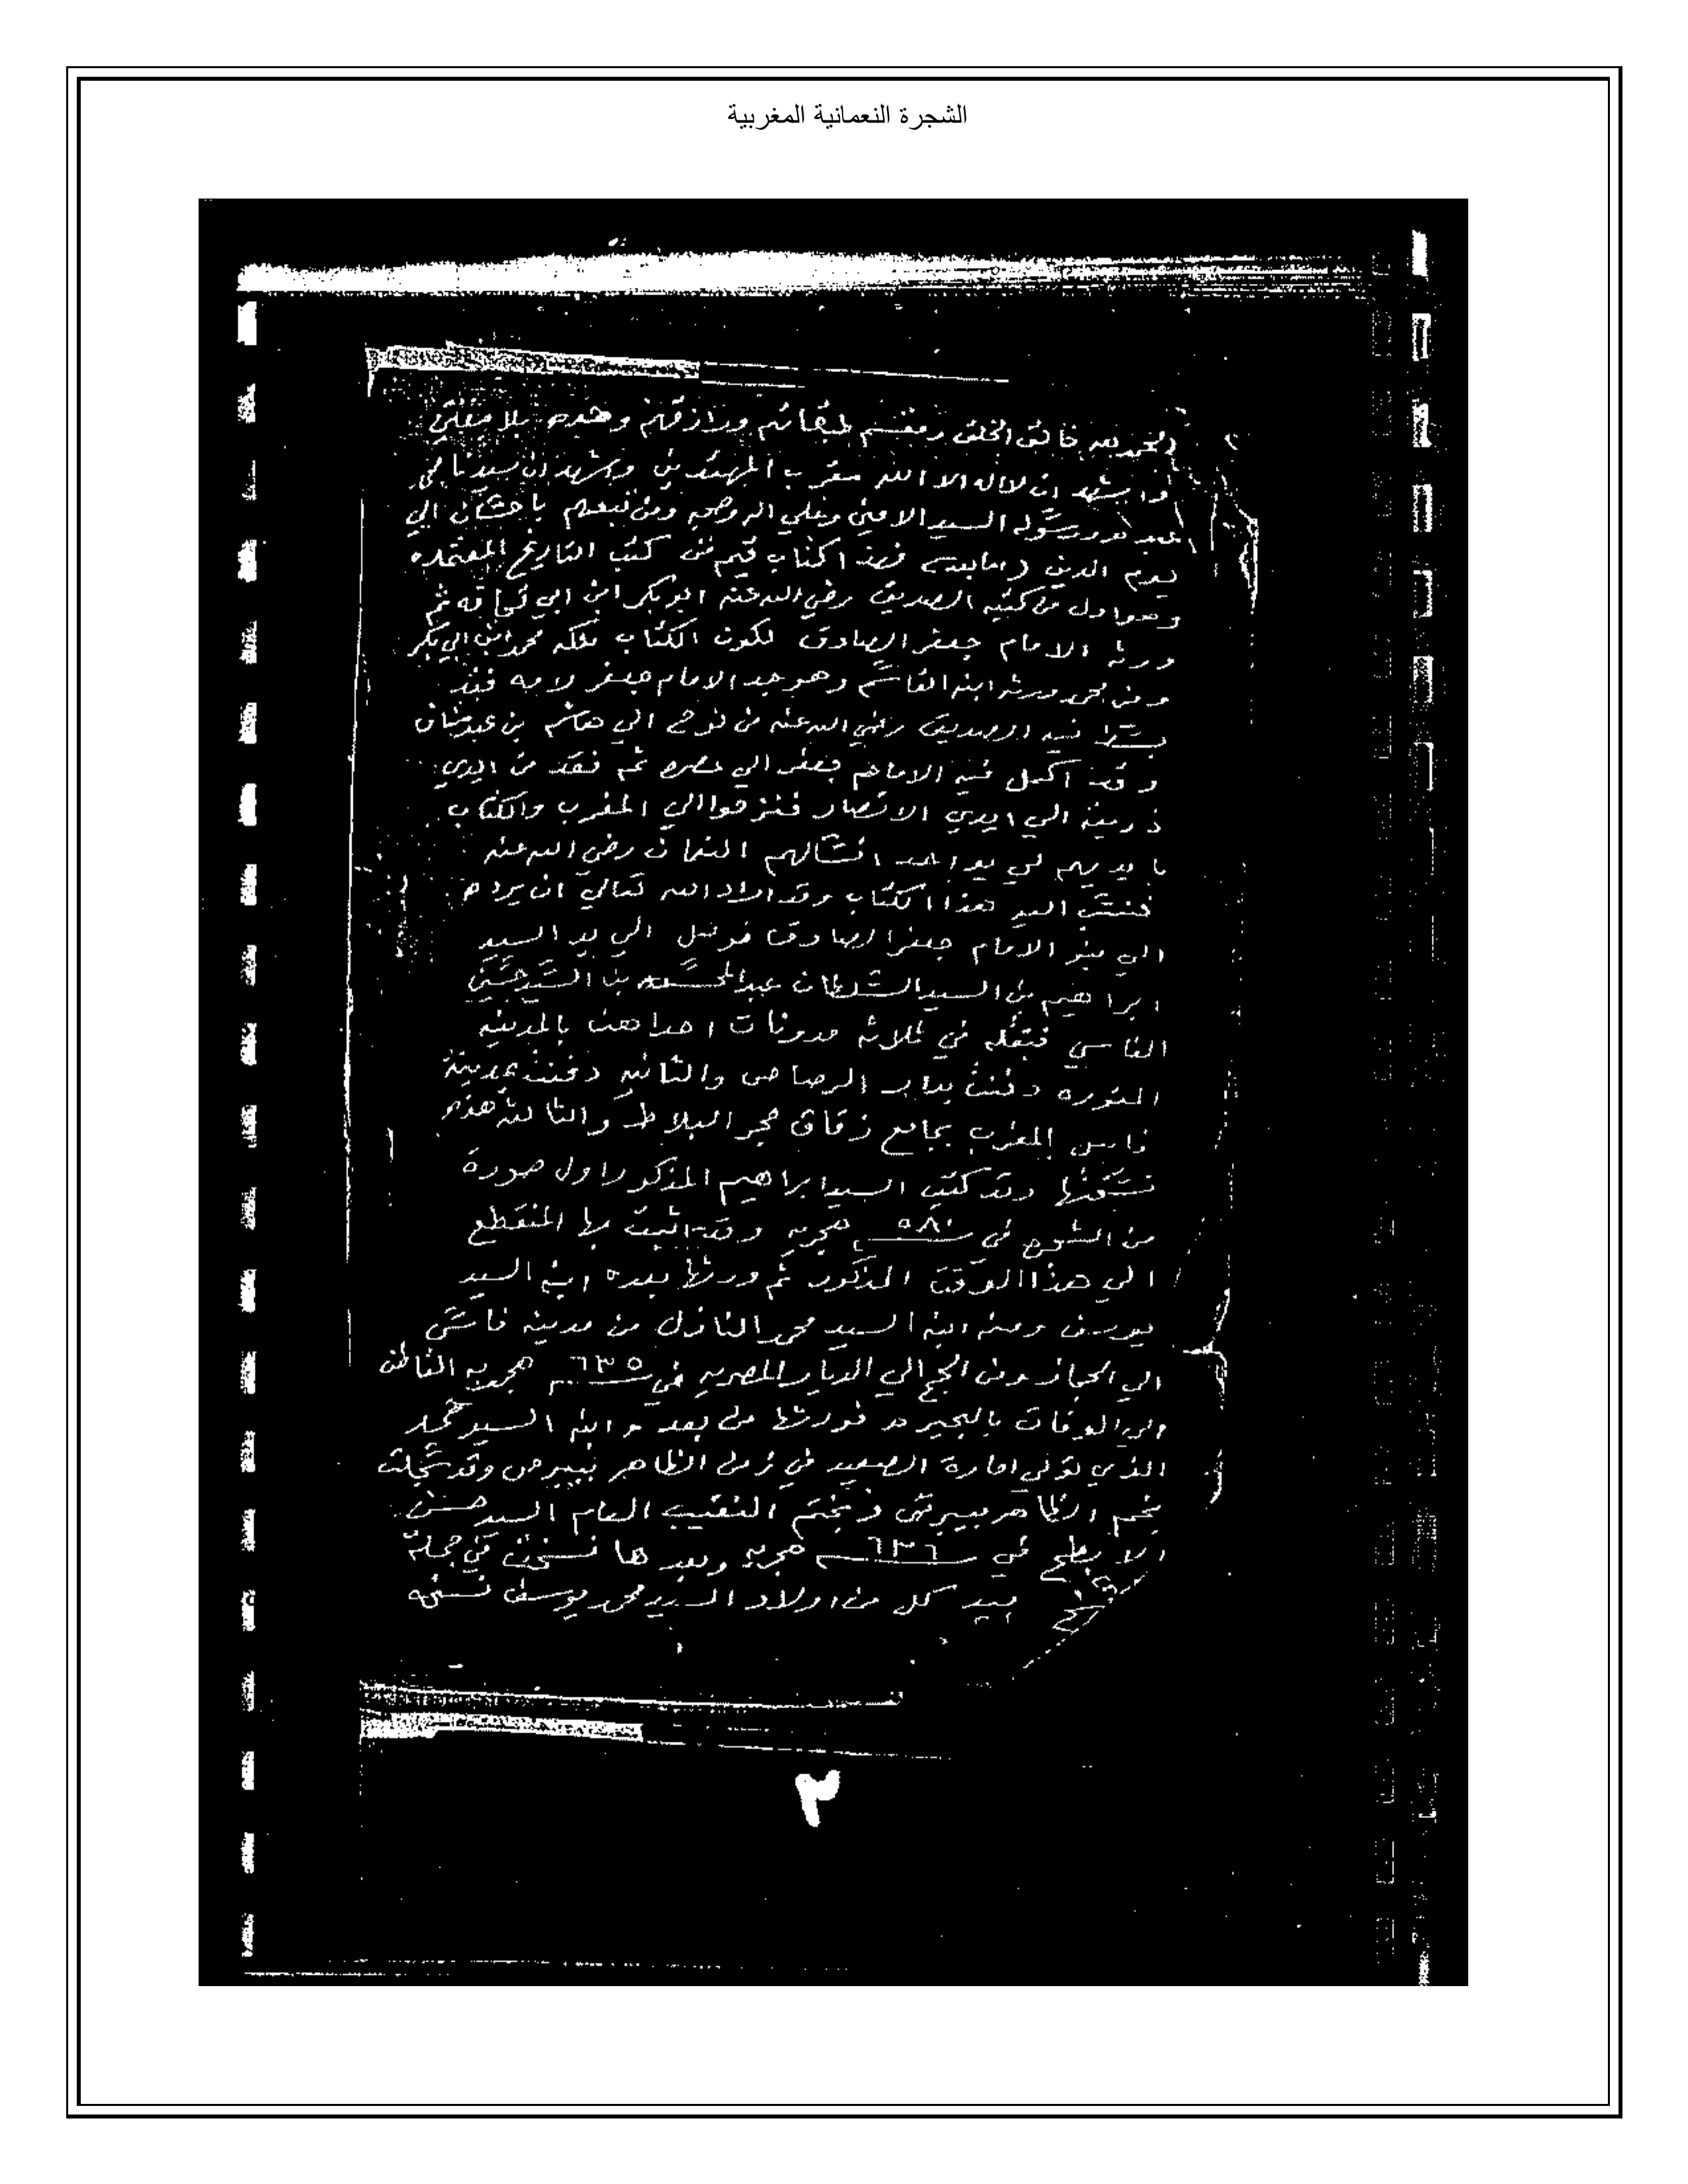 الشجرة النعمانية المغربية
الحمد لله خالق الخلق ومقسم طبقاتهم ورازقهم وحده بلا
واشهد ان لااله الا الله مقرب المهتدين ونشهد ان سيدنا
عبده ورسوله السيد الامين وعلي اله وصحبه ومن تبعهم باحسان الي
يوم الدين وبعد فهذا كتاب قيم من كتب التاريخ المعتمده
وهو اول من كتبه الصديق رضي الله عنه ابو بكر ابن ابي قحافه ثم
ورثه الامام جعفر الصادق لكون الكتاب ملكه محمد ابن ابي بكر
ومن محمد ورثه ابنه القاسم وهو جد الامام جعفر لامه فقد
بسط فيه الصديق رضي الله عنه من نوح الي هاشم بن عبد مناف
وقد اكمل فيه الامام جعفر الي عصره ثم فقد من ايدي
ذريته الي ايدي الانصار فنزحوا الي المغرب والكتاب
بايديهم النعمان رضي الله عنه
فنسب اليه هذا الكتاب وقد اراد الله تعالي ان يرده
الي بيت الامام جعفر الصادق فوصل الي يد السيد
ابراهيم بن السيد السلطان عبد المحسن بن السيد حسين
الفاسي فنقله في ثلاثه مدونات احداهن بالمدينه
المنوره دفنت بباب الرصاص والثانيه دفنت بمدينة
فاس المغرب بجامع زقاق حجر البلاط والثالثه هذه
نسختها وقد كتب السيد ابراهيم المذكور اول صورة
من الشجره في ٥٨٠ هجريه وقد اثبت بها المنقطع
الي هذا الوقت المذكور ثم ورثها بعده ابنه السيد
يوسف ومنه ابنه السيد محمد النازل من مدينه فاس
الي الحجاز ومن الحج الي الديار المصريه في ٦٣٥ هجريه القاطن
الي الوفات بالبحيره فورثها من بعده ابنه السيد محمد
الذي تولي امارة الصعيد في زمن الظاهر بيبرس وقد سجلت
بختم الظاهر بيبرس وبختم النقيب العام السيد حسن
الابطح في ٦٣٦ هجريه وبعدها نسخت في جملة
بيد كل من اولاد السيد محمد يوسف نسخه
٣